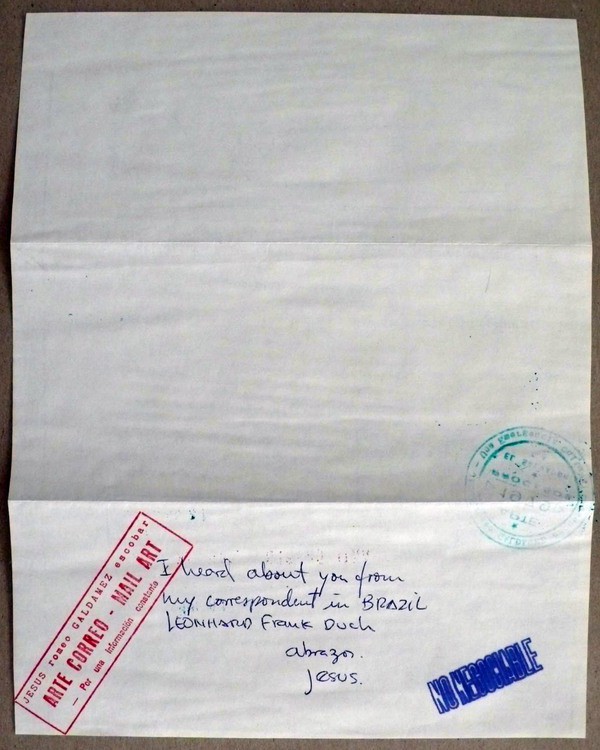 I heard about you from
my correspondent in BRAZIL
LEONHARD Frank Duch
abrazos.
Jesus.
JESUS romeo GALDAMEZ escobar
ARTE CORREO - MAIL ART
— Por una información constante
NO NEGOCIABLE